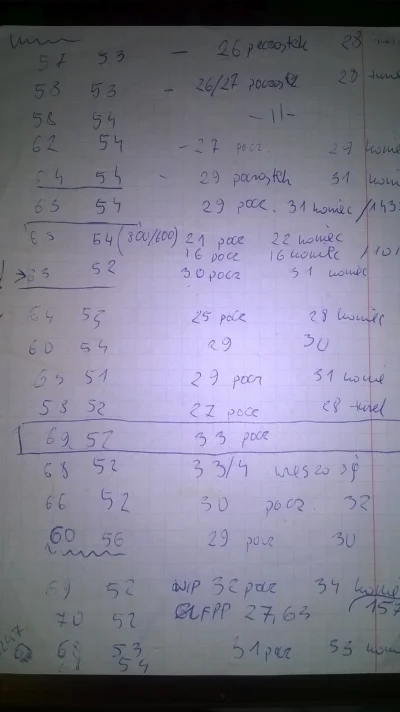 57 53 - 26 początek 28
58 53 - 26/27 początk 28
58 54 -||-
62 54 - 27 pocz. 29 koniec
64 54 - 29 początek 31 koni
65 54 29 pocz. 31 koniec /143
65 54 (800/600) 21 pocz 22 koniec
16 pocz 16 koniec /101
→ 65 52 30 pocz 31 koniec
64 55 25 pocz 28 koniec
60 54 29 30
65 51 29 pocz 31 konie
58 52 27 pocz 28
69 52 33 pocz
68 52 33/4
66 52 30 pocz. 32
60 56 29 pocz 30
69 52 32 pocz 34 konie
70 52 27,63 /157
68 53 31 pocz 33 koni
54